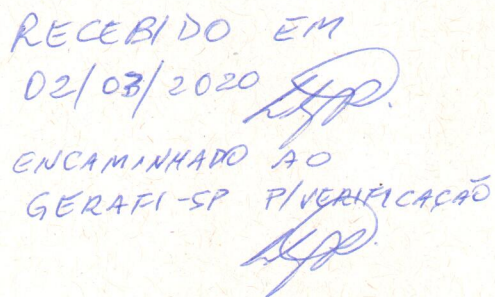 RECEBIDO EM
02/03/2020
ENCAMINHADO AO
GERAFI-SP P/VERIFICAÇÃO